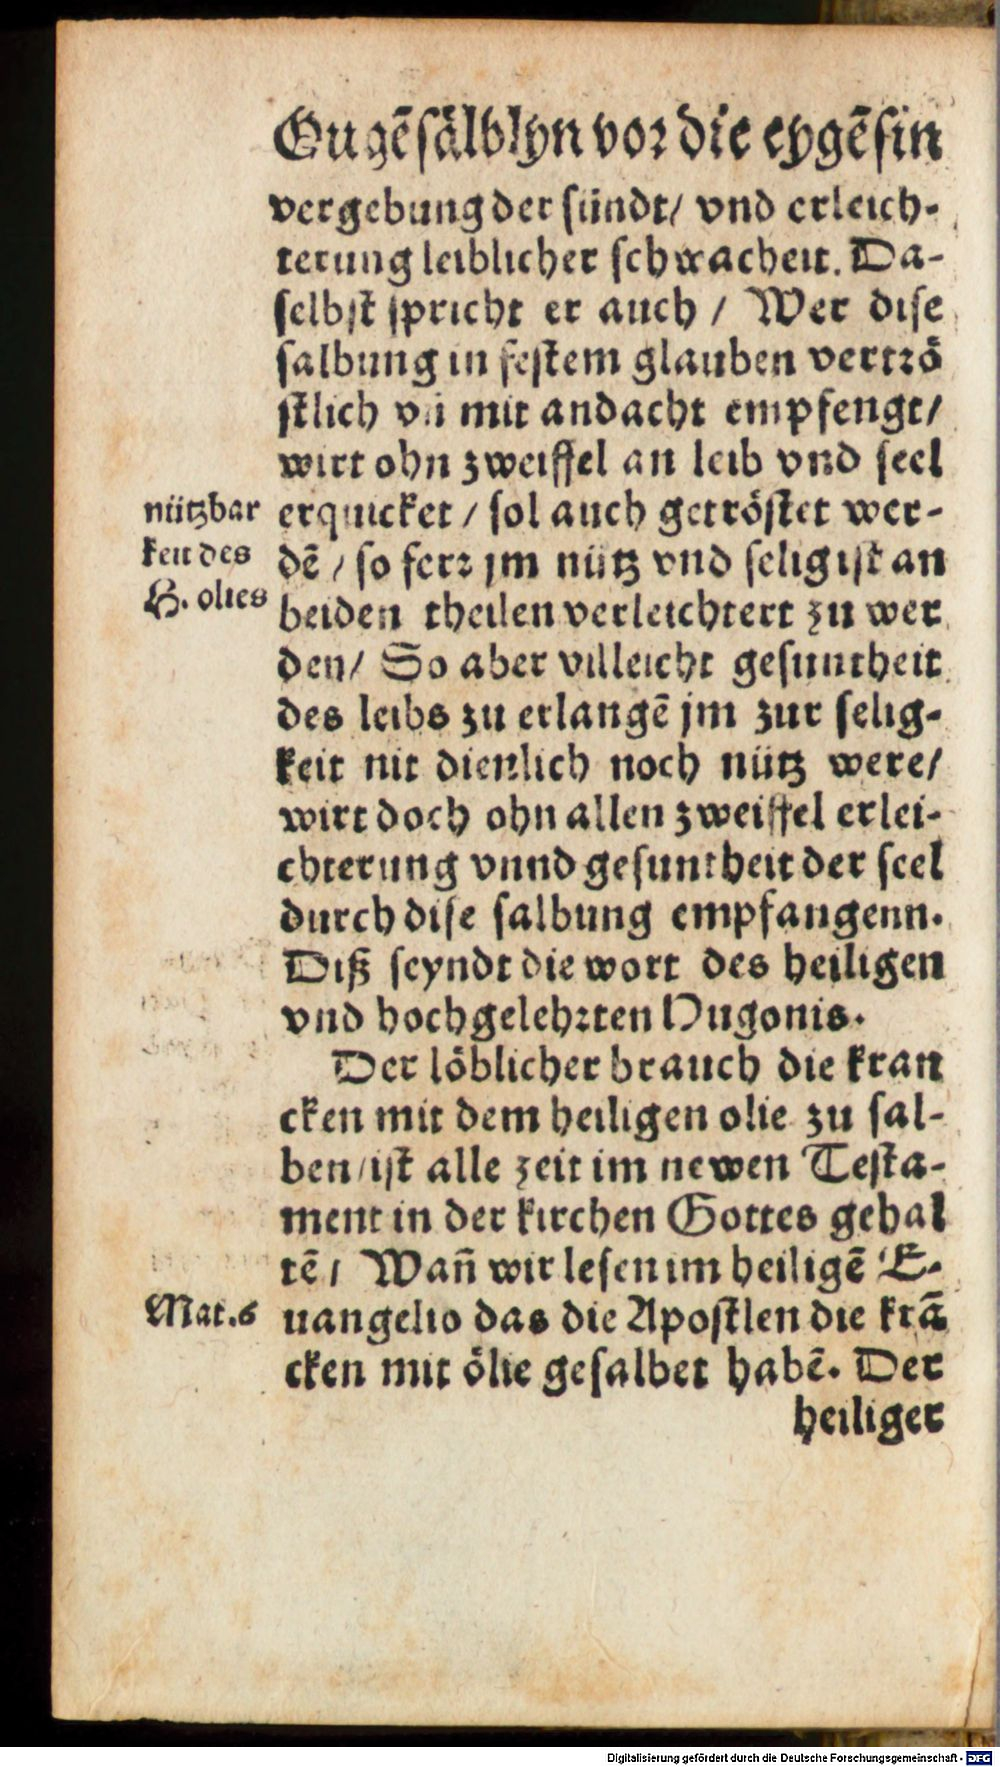 Eugẽsälblyn vor die eygẽsin
vergebung der sündt/ vnd erleich-
terung leiblicher schwacheit. Da-
selbst spricht er auch / Wer dise
salbung in festem glauben vertrö
stlich vñ mit andacht empfengt/
wirt ohn zweiffel an leib vnd seel
nützbar
keit des
H. olies
erquicket / sol auch getröstet wer-
dẽ / so ferr jm nütz vnd selig ist an
beiden theilen verleichtert zu wer
den/ So aber villeicht gesuntheit
des leibs zu erlangẽ jm zur selig-
keit nit dienlich noch nütz were/
wirt doch ohn allen zweiffel erlei-
chterung vnnd gesuntheit der seel
durch dise salbung empfangenn.
Diß seyndt die wort des heiligen
vnd hochgelehrten Hugonis.
Der löblicher brauch die kran
cken mit dem heiligen olie zu sal-
ben/ist alle zeit im newen Testa-
ment in der kirchen Gottes gehal
tẽ / Wañ wir lesen im heiligẽ E-
Mat.6
uangelio das die Apostlen die krã
cken mit ölie gesalbet habẽ. Der
heiliger
Digitalisierung gefördert durch die Deutsche Forschungsgemeinschaft - DFG